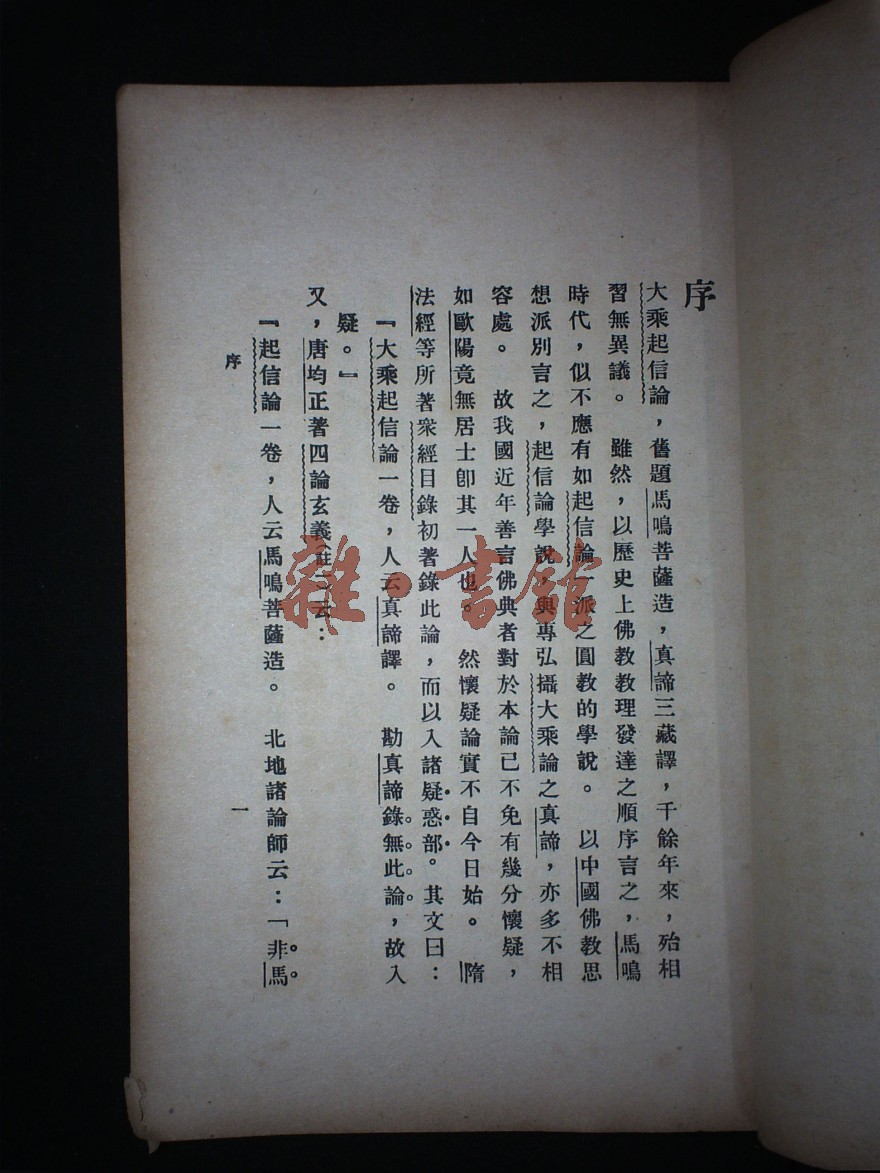 序
大乘起信論，舊題馬鳴菩薩造，真諦三藏譯，千餘年來，殆相
習無異議。　雖然，以歷史上佛教教理發達之順序言之，馬鳴
時代，似不應有如起信論一派之圓教的學說。　以中國佛教思
想派別言之，起信論學說，與專弘攝大乘論之真諦，亦多不相
容處。　故我國近年善言佛典者對於本論已不免有幾分懷疑，
如歐陽竟無居士卽其一人也。　然懷疑論實不自今日始。　隋
法經等所著衆經目錄初著錄此論，而以入諸疑惑部。其文曰：
『大乘起信論一卷，人云真諦譯。　勘真諦錄無此論，故入
疑。』
又，唐均正著四論玄義（註 云：
『起信論一卷，人云馬鳴菩薩造。　北地諸論師云：「非馬
序
一
雜·書館